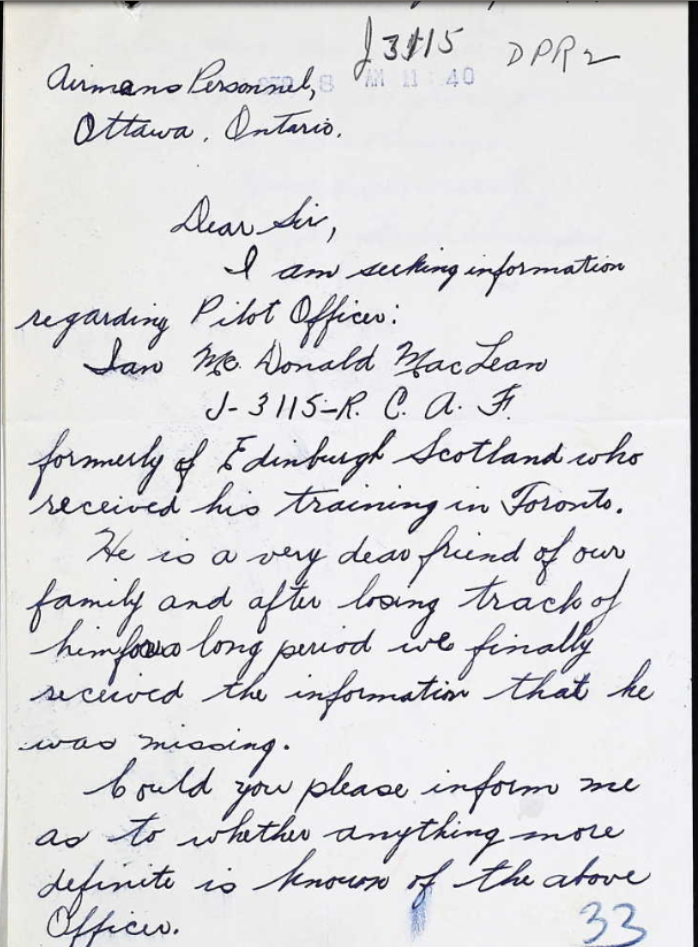 J3115 DPR2
Airmans Personnel,
8 AM 11 40
Ottawa, Ontario.
Dear Sir,
I am seeking information
regarding Pilot Officer:
Ian Mc. Donald MacLean
J-3115-R. C. A. F.
formerly of Edinburgh Scotland who
received his training in Toronto.
He is a very dear friend of our
family and after losing track of
him for a long period we finally
received the information that he
was missing.
Could you please inform me
as to whether anything more
definite is known of the above
Officer.
33